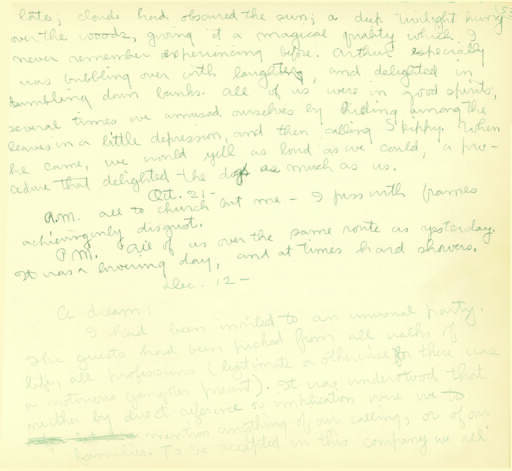 late; clouds had obscured the sun; a deep twilight hung
over the woods, giving it a magical quality which I
never remember experiencing before. Arthur especially
was bubbling over with laughter, and delighted in
tumbling down banks. All of us were in good spirits,
several times we amused ourselves by hiding among the
leaves in a little depression, and then calling Skippy. When
he came, we would yell as loud as we could, a proce-
dure that delighted the dog as much as us.
Oct. 21-
A.M. all to church but me - I fuss with frames
achieving only disgust.
P.M. all of us over the same route as yesterday.
It was a lowering day, and at times hard showers.
Dec. 12-
A dream:
I had been invited to an unusual party.
The guests had been picked from all walks of
life, all professions (legitimate or otherwise for there was
a notorious gangster present). It was understood that
neither by direct reference or implication were we to
mention anything of our callings, or of our
families. To be accepted in this company we all